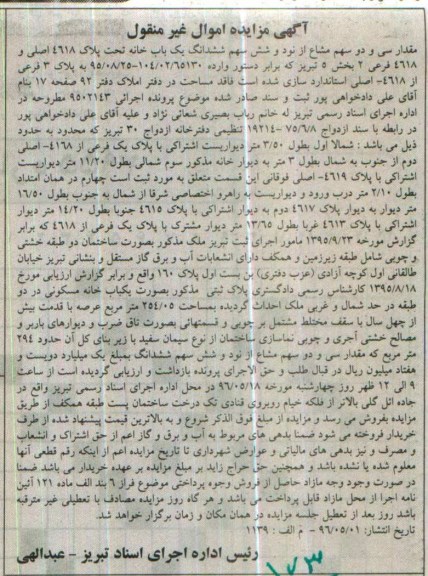 آگهی مزایده اموال غیر منقول
مقدار سی و دو سهم مشاع از نود و شش سهم ششدانگ یک باب خانه تحت پلاک ۴۶۱۸ اصلی و
۴۶۱۸ فرعی ۲ بخش ۵ تبریز که برابر دستور وارده ۱۰۴/۰۲/۶۵۱۳۰-۹۵/۰۸/۲۵ به پلاک ۳ فرعی
از ۴۶۱۸- اصلی استاندارد سازی شده است فاقد مساحت در دفتر املاک دفتر ۹۲ صفحه ۱۷ بنام
آقای علی دادخواهی پور ثبت و سند صادر شده موضوع پرونده اجرائی ۹۵۰۲۱۴۳ مطروحه در
اداره اجرای اسناد رسمی تبریز له خانم رباب بصیری شعائی نژاد و علیه آقای علی دادخواهی پور
در رابطه با سند ازدواج ۷۵/۶/۸ -۱۹۲۱۴ تنظیمی دفترخانه ازدواج ۳۰ تبریز که محدود به حدود
ذیل می باشد : شمالا اول بطول ۳/۵۰ متر دیواریست اشتراکی با پلاک یک فرعی از ۴۱۶۸- اصلی
دوم از جنوب به شمال بطول ۳ متر به دیوار خانه مذکور سوم شمالی بطول ۱۱/۲۰ متر دیواریست
اشتراکی با پلاک ۴۶۱۹- اصلی فوقانی این قسمت متعلق به مورد ثبت است چهارم در همان امتداد
بطول ۲/۱۰ متر درب ورود و دیواریست به راهرو اختصاصی شرقا از شمال به جنوب بطول ۱۶/۵۰
متر دیوار به دیوار پلاک ۴۶۱۷ دوم به دیوار اشتراکی با پلاک ۴۶۱۵ جنوبا بطول ۱۴/۲۰ متر دیوار
اشتراکی با پلاک ۴۶۱۳ غربا بطول ۱۳/۶۵ متر دیوار مشترک با پلاک یک فرعی از ۴۶۱۸ که برابر
گزارش مورخه ۱۳۹۵/۹/۲۳ مامور اجرای ثبت تبریز ملک مذکور بصورت ساختمان دو طبقه خشتی
و چوبی شامل طبقه زیرزمین و همکف دارای انشعابات آب و برق گاز مستقل و بنشانی تبریز خیابان
طالقانی اول کوچه آزادی (عزب دفتری) بن بست اول پلاک ۱۶۰ واقع و برابر گزارش ارزیابی مورخ
۱۳۹۵/۸/۱۸ کارشناس رسمی دادگستری پلاک ثبتی مذکور بصورت یکباب خانه مسکونی در دو
طبقه در حد شمال و غربی ملک احداث گردیده بمساحت ۲۵۴/۰۵ متر مربع عرصه با قدمت بیش
از چهل سال با سقف مختلط مشتمل بر چوبی و قسمتهائی بصورت تاق ضرب و دیوارهای باربر و
مصالح خشتی آجری و چوبی نماسازی ساختمان از نوع سیمان سفید با زیر بنای کل آن حدود ۲۹۴
متر مربع که مقدار سی و دو سهم مشاع از نود و شش سهم ششدانگ بمبلغ یک میلیارد دویست و
هفتاد میلیون ریال در قبال طلب و حق الاجرای پرونده بازداشت و ارزیابی گردیده است از ساعت
۹ الی ۱۲ ظهر روز چهارشنبه مورخه ۹۶/۰۵/۱۸ در محل اداره اجرای اسناد رسمی تبریز واقع در
جاده ائل گلی بالاتر از فلکه خیام روبروی قنادی تک درخت ساختمان پست طبقه همکف از طریق
مزایده بفروش می رسد و مزایده از مبلغ فوق الذکر شروع و به بالاترین قیمت پیشنهاد شده از طرف
خریدار فروخته می شود ضمنا بدهی های مربوط به آب و برق و گاز اعم از حق اشتراک و انشعاب
و مصرف و نیز بدهی های مالیاتی و عوارض شهرداری تا تاریخ مزایده اعم از اینکه رقم قطعی آنها
معلوم شده یا نشده باشد و همچنین حق حراج زاید بر مبلغ مزایده بر عهده خریدار می باشد ضمنا
در صورت وجود وجه مازاد حاصل از فروش وجوه پرداختی موضوع فراز ۶ بند الف ماده ۱۲۱ آئین
نامه اجرا از محل مازاد قابل پرداخت می باشد و هر گاه روز مزایده مصادف با تعطیلی غیر مترقبه
باشد روز بعد از تعطیل جلسه مزایده در همان مکان و زمان برگزار خواهد شد.
تاریخ انتشار: ۹۶/۰۵/۰۱ - م الف : ۱۱۳۹
رئیس اداره اجرای اسناد تبریز - عبدالهی
۱۷۳